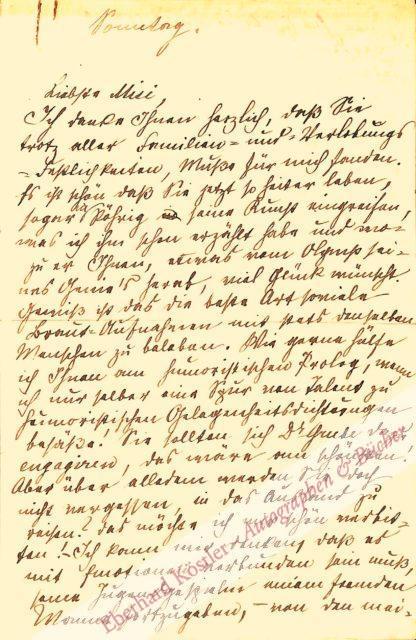 Sonntag.
Liebste Mizi,
Ich danke Ihnen herzlich, daß Sie
trotz aller Familien- und Verlobungs
-Festlichkeiten, Muße für mich fanden.
Es ist schön daß Sie jetzt so heiter leben,
sogar Röhrig in seine Kunst eingreifen,
was ich ihm schon erzählt habe und wo-
zu er Ihnen, etwas vom Olymp sei-
nes Genie's herab, viel Glück wünscht.
Gewiß ist das die beste Art soziale
Braus-Aufnahmen mit stets denselben
Menschen zu beleben. Wie gerne hälfe
ich Ihnen am humoristischen Prolog, wenn
ich nur selber eine Spur von Talent zu
humoristischen Gelegenheitsdichtungen
besäße! Sie sollten sich Dr dazu
engagiren, das wäre am schönsten!
Aber über alledem werden Sie doch
nicht vergessen, in das Ausland zu
reisen? das möchte ich schön verbit-
ten! – Ich kann mir denken, daß es
mit Emotionen verbunden sein muß,
seine Jugendgespielin einem fremden
Manne fortzugeben, – von den mei-
Eberhard Köstler - Autographen & Bücher